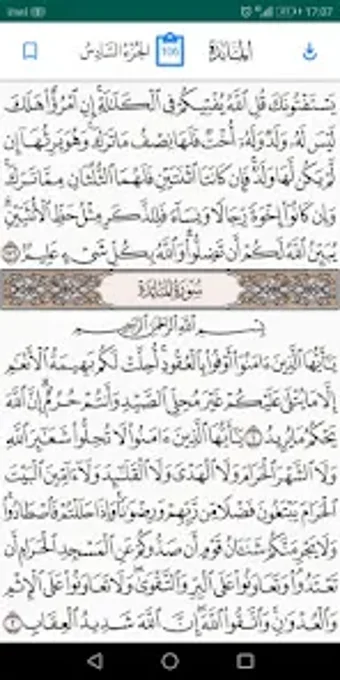 17:07
المائدة
106
الجزء السادس
يَسْتَفْتُونَكَ قُلِ ٱللَّهُ يُفْتِيكُمْ فِى ٱلْكَلَٰلَةِ إِنِ ٱمْرُؤٌا۟ هَلَكَ
لَيْسَ لَهُۥ وَلَدٌ وَلَهُۥٓ أُخْتٌ فَلَهَا نِصْفُ مَا تَرَكَ وَهُوَ يَرِثُهَآ إِن
لَّمْ يَكُن لَّهَا وَلَدٌ فَإِن كَانَتَا ٱثْنَتَيْنِ فَلَهُمَا ٱلثُّلُثَانِ مِمَّا تَرَكَ
وَإِن كَانُوٓا۟ إِخْوَةً رِّجَالًا وَنِسَآءً فَلِلذَّكَرِ مِثْلُ حَظِّ ٱلْأُنثَيَيْنِ
يُبَيِّنُ ٱللَّهُ لَكُمْ أَن تَضِلُّوا۟ وَٱللَّهُ بِكُلِّ شَىْءٍ عَلِيمٌۢ ١٧٦
سُورَةُ المَائِدَةِ
بِسْمِ ٱللَّهِ ٱلرَّحْمَٰنِ ٱلرَّحِيمِ
يَٰٓأَيُّهَا ٱلَّذِينَ ءَامَنُوٓا۟ أَوْفُوا۟ بِٱلْعُقُودِ أُحِلَّتْ لَكُم بَهِيمَةُ ٱلْأَنْعَٰمِ
إِلَّا مَا يُتْلَىٰ عَلَيْكُمْ غَيْرَ مُحِلِّى ٱلصَّيْدِ وَأَنتُمْ حُرُمٌ إِنَّ ٱللَّهَ
يَحْكُمُ مَا يُرِيدُ ١ يَٰٓأَيُّهَا ٱلَّذِينَ ءَامَنُوا۟ لَا تُحِلُّوا۟ شَعَٰٓئِرَ ٱللَّهِ
وَلَا ٱلشَّهْرَ ٱلْحَرَامَ وَلَا ٱلْهَدْىَ وَلَا ٱلْقَلَٰٓئِدَ وَلَآ ءَآمِّينَ ٱلْبَيْتَ
ٱلْحَرَامَ يَبْتَغُونَ فَضْلًا مِّن رَّبِّهِمْ وَرِضْوَٰنًا وَإِذَا حَلَلْتُمْ فَٱصْطَادُوا۟
وَلَا يَجْرِمَنَّكُمْ شَنَـَٔانُ قَوْمٍ أَن صَدُّوكُمْ عَنِ ٱلْمَسْجِدِ ٱلْحَرَامِ أَن
تَعْتَدُوا۟ وَتَعَاوَنُوا۟ عَلَى ٱلْبِرِّ وَٱلتَّقْوَىٰ وَلَا تَعَاوَنُوا۟ عَلَى ٱلْإِثْمِ
وَٱلْعُدْوَٰنِ وَٱتَّقُوا۟ ٱللَّهَ إِنَّ ٱللَّهَ شَدِيدُ ٱلْعِقَابِ ٢